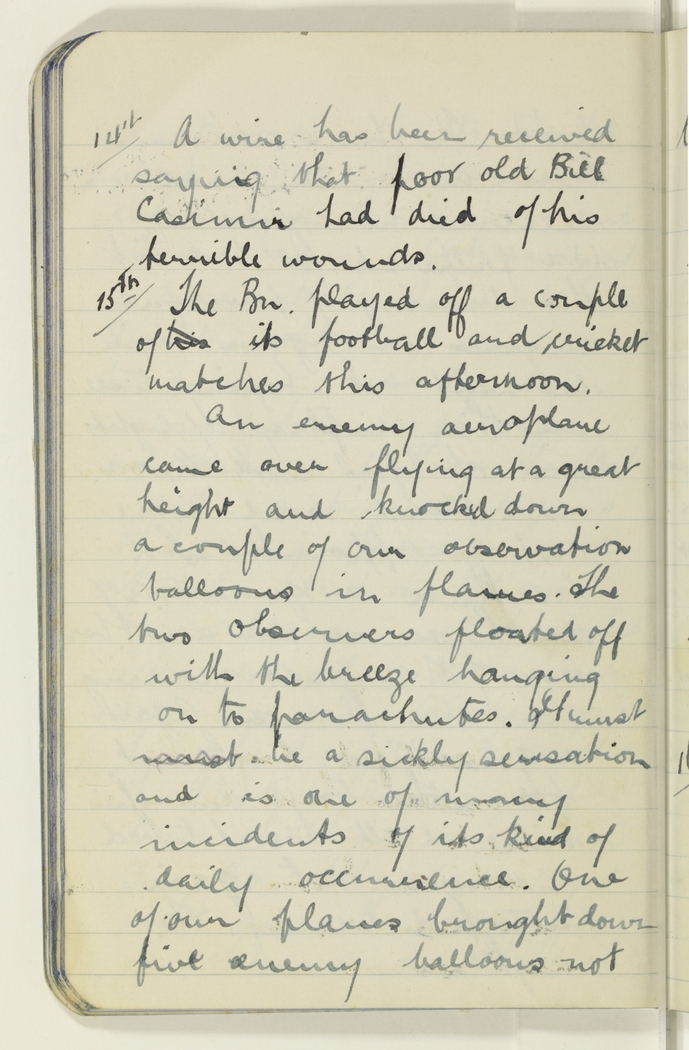 14th A wire has been received
saying that poor old Bill
Casimir had died of his
terrible wounds.
15th The Bn. played off a couple
of his its football and cricket
matches this afternoon.
An enemy aeroplane
came over flying at a great
height and knocked down
a couple of our observation
balloons in flames. The
two observers floated off
with the breeze hanging
on to parachutes. It must
must be a sickly sensation
and is one of many
incidents of its kind of
daily occurrence. One
of our planes brought down
five enemy balloons not